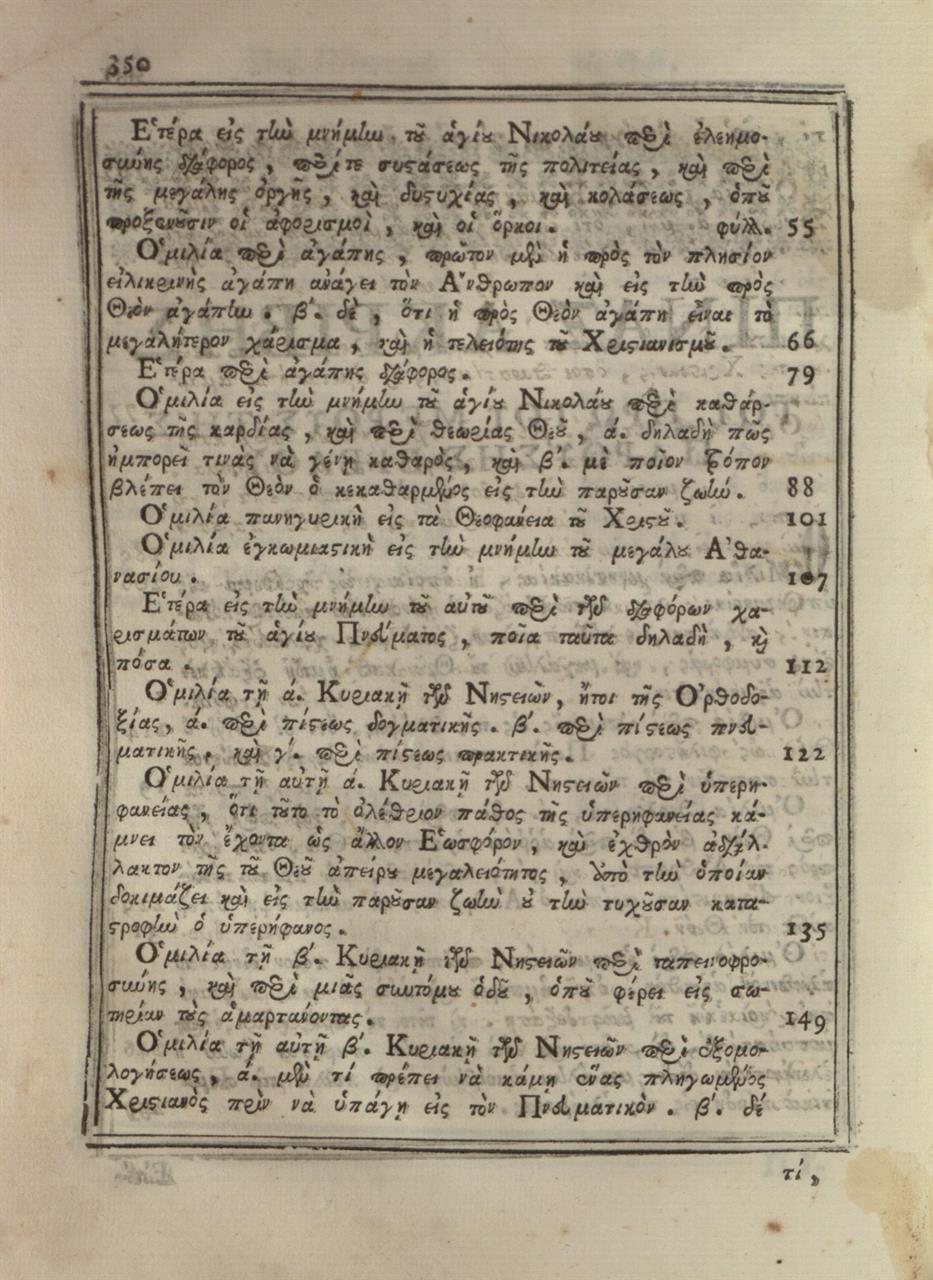 350
Ἑτέρα εἰς τὴν μνήμην τοῦ ἁγίου Νικολάου περὶ ἐλεημο-
σύνης διάφορος, περίτε συστάσεως τῆς πολιτείας, καὶ περὶ
τῆς μεγάλης ὀργῆς, καὶ δυστυχίας, καὶ κολάσεως, ὁποῦ
προξενοῦσιν οἱ ἀφορισμοὶ, καὶ οἱ ὅρκοι. φύλλ. 55
Ὁμιλία περὶ ἀγάπης, πρῶτον μὲν ἡ πρὸς τὸν πλησίον
εἰλικρινὴς ἀγάπη ἀνάγει τὸν Ἄνθρωπον καὶ εἰς τὴν πρὸς
Θεὸν ἀγάπην. β'. δὲ, ὅτι ἡ πρὸς Θεὸν ἀγάπη εἶναι τὸ
μεγαλήτερον χάρισμα, καὶ ἡ τελειότης τοῦ Χριστιανισμοῦ. 66
Ἑτέρα περὶ ἀγάπης διάφορος. 79
Ὁμιλία εἰς τὴν μνήμην τοῦ ἁγίου Νικολάου περὶ καθάρ-
σεως τῆς καρδίας, καὶ περὶ θεωρίας Θεοῦ, ά. δηλαδὴ πῶς
ἠμπορεῖ τινὰς νὰ γένῃ καθαρὸς, καὶ β'. μὲ ποῖον τρόπον
βλέπει τὸν Θεὸν ὁ κεκαθαρμένος εἰς τὴν παροῦσαν ζωήν. 88
Ὁμιλία πανηγυρικὴ εἰς τὰ Θεοφάνεια τοῦ Χριστοῦ. 101
Ὁμιλία ἐγκωμιαστικὴ εἰς τὴν μνήμην τοῦ μεγάλου Ἀθα-
νασίου. 107
Ἑτέρα εἰς τὴν μνήμην τοῦ αὐτοῦ περὶ τῶν διαφόρων χα-
ρισμάτων τοῦ ἁγίου Πνεύματος, ποῖα ταῦτα δηλαδὴ, κὶ
πόσα. 112
Ὁμιλία τῇ ά. Κυριακῇ τῶν Νηστειῶν, ἤτοι τῆς Ὀρθοδο-
ξίας, ά. περὶ πίστεως δογματικῆς. β'. περὶ πίστεως πνευ-
ματικῆς, καὶ γ'. περὶ πίστεως πρακτικῆς. 122
Ὁμιλία τῇ αὐτῇ ά. Κυριακῇ τῶν Νηστειῶν περὶ ὑπερη-
φανείας, ὅτι τοῦτο τὸ ὀλέθριον πάθος τῆς ὑπερηφανείας κά-
μνει τὸν ἔχοντα ὡς ἄλλον Ἑωσφόρον, καὶ ἐχθρὸν ἀδιάλ-
λακτον τῆς τοῦ Θεοῦ ἀπείρου μεγαλειότητος, ὑπὸ τὴν ὁποίαν
δοκιμάζει καὶ εἰς τὴν παροῦσαν ζωὴν οὐ τὴν τυχοῦσαν κατα-
στροφὴν ὁ ὑπερήφανος. 135
Ὁμιλία τῇ β'. Κυριακῇ τῶν Νηστειῶν περὶ ταπεινοφρο-
σύνης, καὶ περὶ μιᾶς συντόμου ὁδοῦ, ὁποῦ φέρει εἰς σω-
τηρίαν τοὺς ἁμαρτάνοντας. 149
Ὁμιλία τῇ αὐτῇ β'. Κυριακῇ τῶν Νηστειῶν περὶ ἐξομο-
λογήσεως, ά. μὲν τί πρέπει νὰ κάμῃ ἕνας πληγωμένος
Χριστιανὸς πρὶν νὰ ὑπάγῃ εἰς τὸν Πνευματικὸν. β'. δέ
τί,